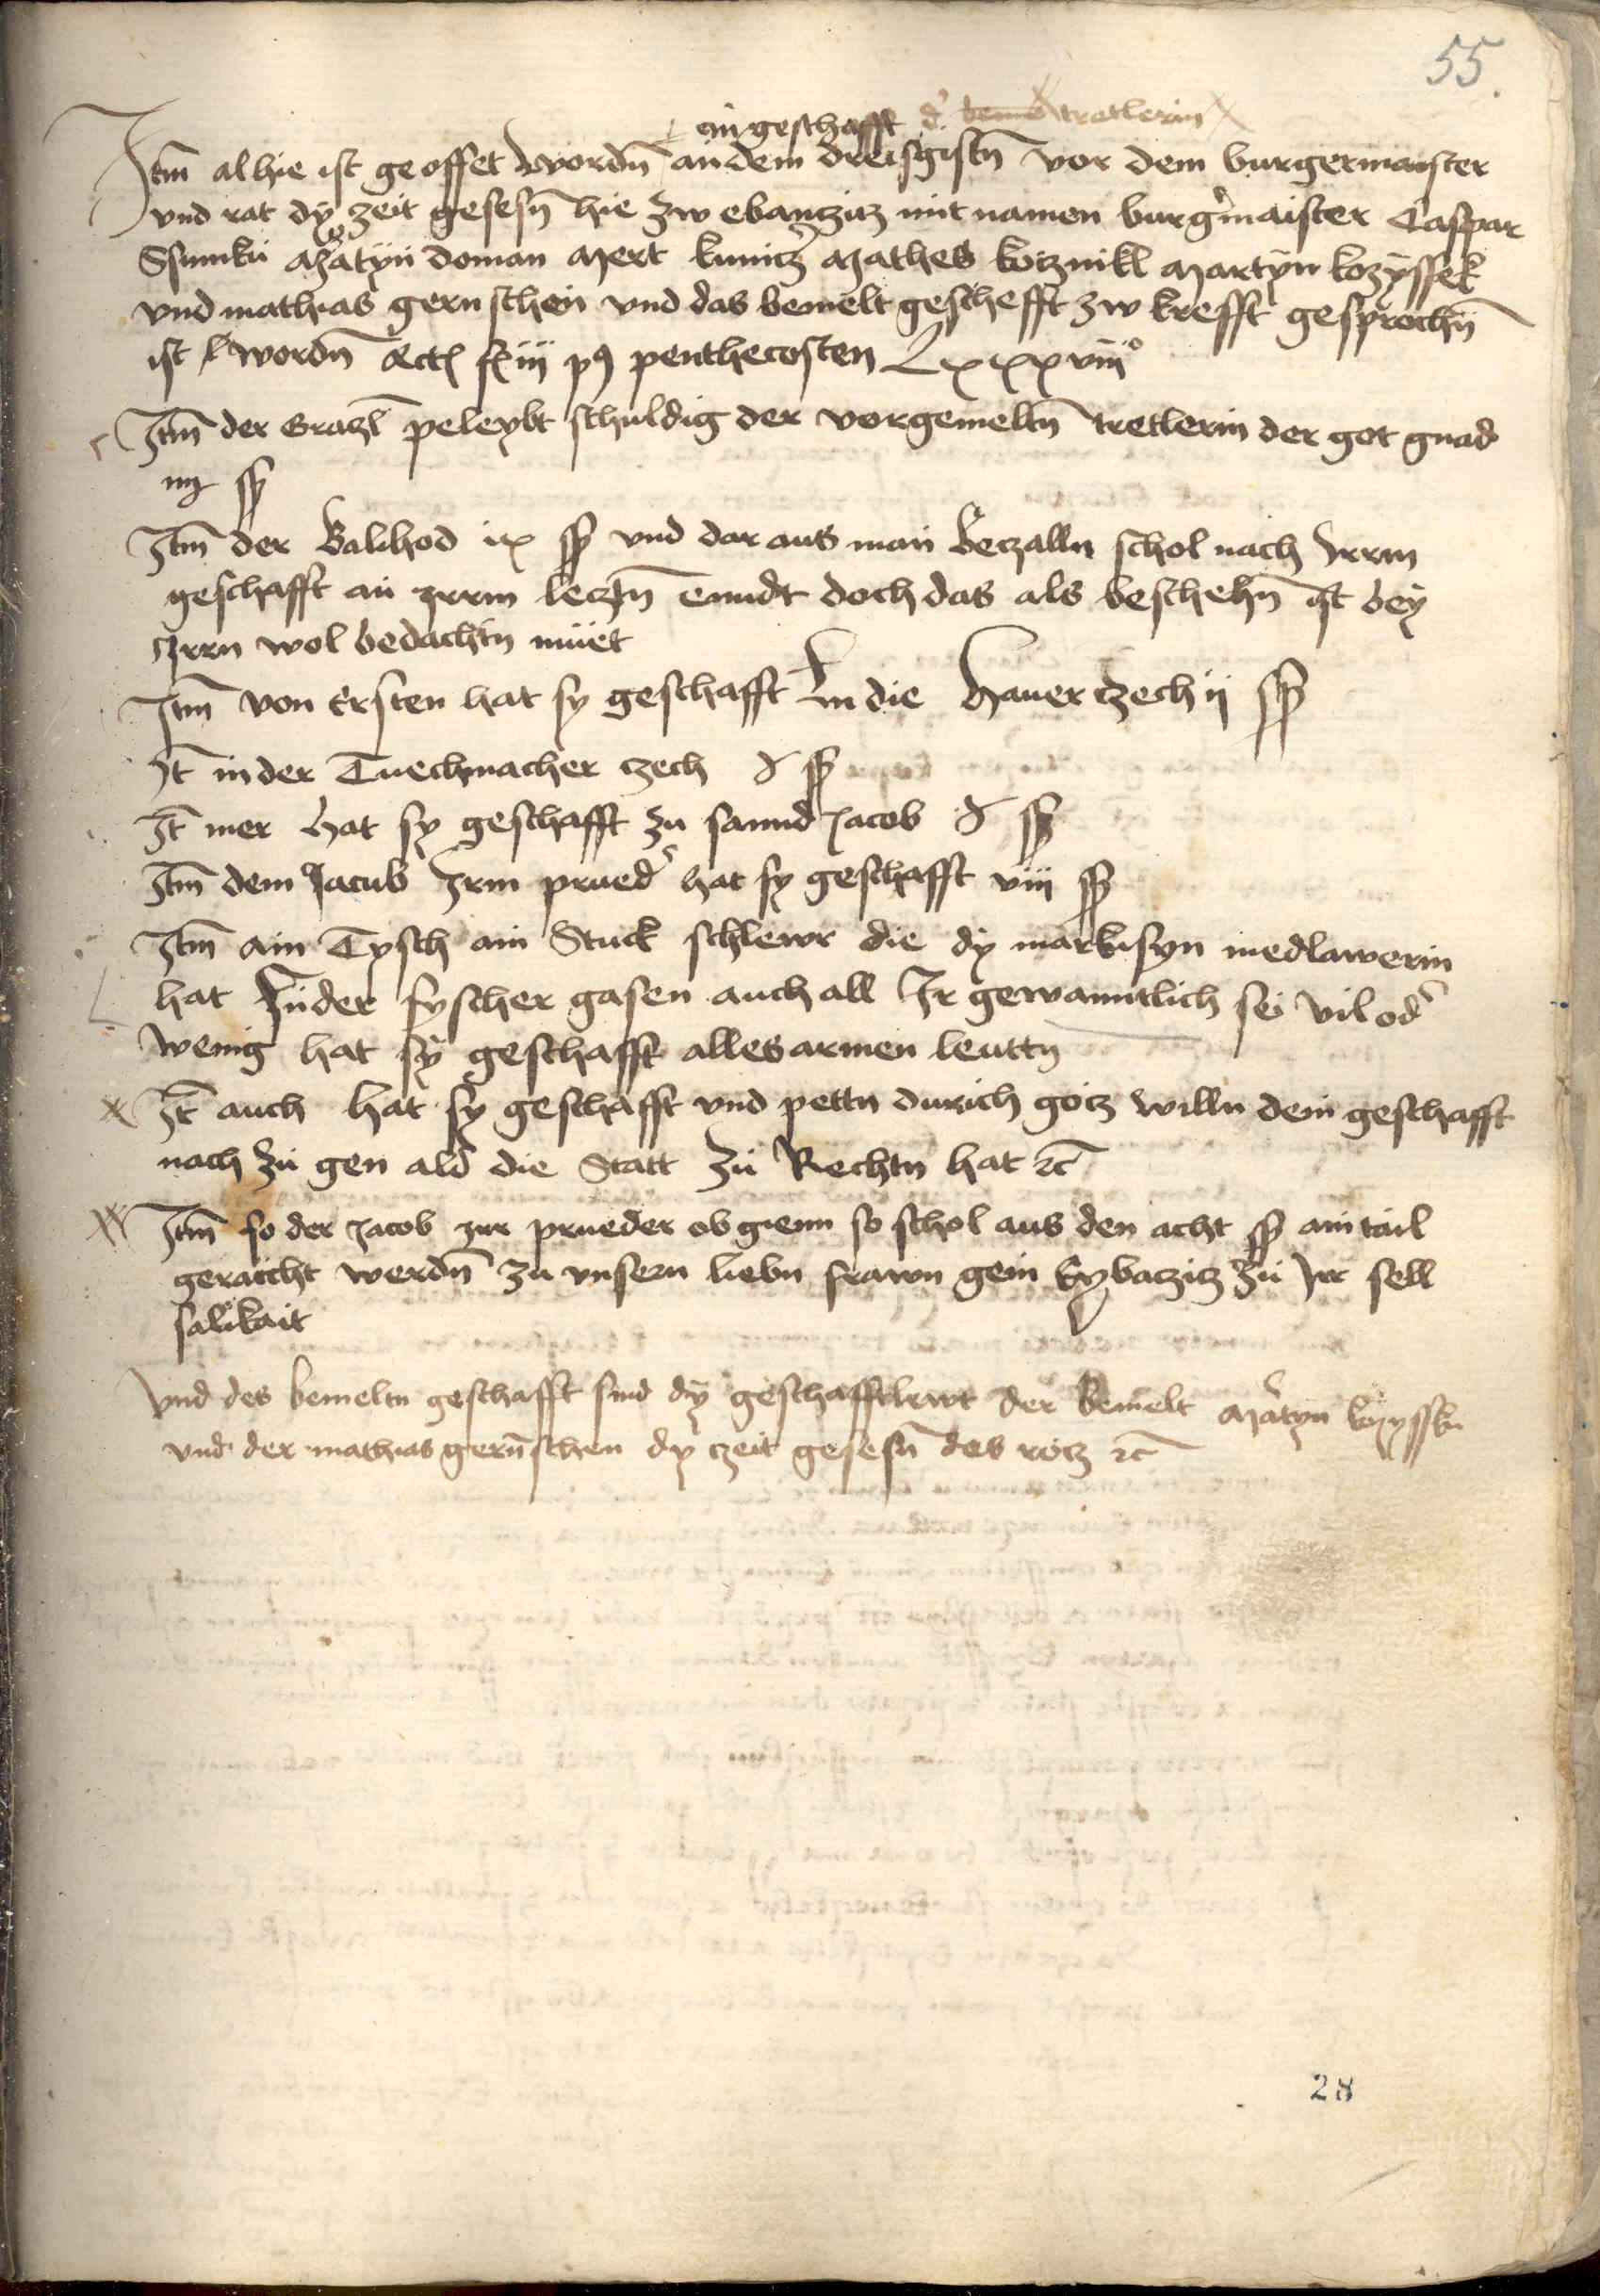 55.
ein geschafft d' bemelt tretlerin
Itm alhie ist geoffet wordn an dem dreisgistn vor dem burgermaister
vnd rat dy zeit gesesn hie zw ebanczicz mit namen burg'maister Caspar
Ssimku M'atyn doman Mert kunicz Mathes kocznikl Martyn kozyssek
vnd mathias gernschen vnd das bemelt geschefft zw krefft gesprochn
ist wordn Act f iii p9 penthecosten Lxxxviii°
Itm der Grazl peleybt schuldig der vorgemeltn tretlerin der got gnad
iiij ß
Itm der Balihod ix ß vnd dar aus man beczalln schol nach Irrm
geschafft an Irrm lecztn enndt doch das als beschehn ist bey
Irrn wol bedachtn müet
Itm von Ersten hat sy geschafft In die hauer czech ij ß
It in der Tuechmacher czech ß
It mer hat sy geschafft zu sannd Jacob ß
Itm dem Jacub Irm prued' hat sy geschafft viii ß
Itm ain Tysch ain Stuck schlewr die dy markusyn medlawerin
hat In der fyscher gasen auch all Ir gewanntlich sei vil od'
wenig hat sy geschafft alles armen leuttn
It auch hat sy geschafft vnd pettn durich gocz willn dem geschafft
nach zu gen als die Statt zu Rechtn hat ꝛc
Itm so der Jacob Irr prueder ob gienn so schol aus den acht ß ain tail
geraicht werdn zu vnsern liebn frawn gein Eybaczicz zu Irr sell
salikait
Vnd des bemeltn geschafft sind dy geschafftlewt der bemelt M'atyn kozyssku
vnd der mathias gernschen dy czeit gesesn des rocz ꝛc
28